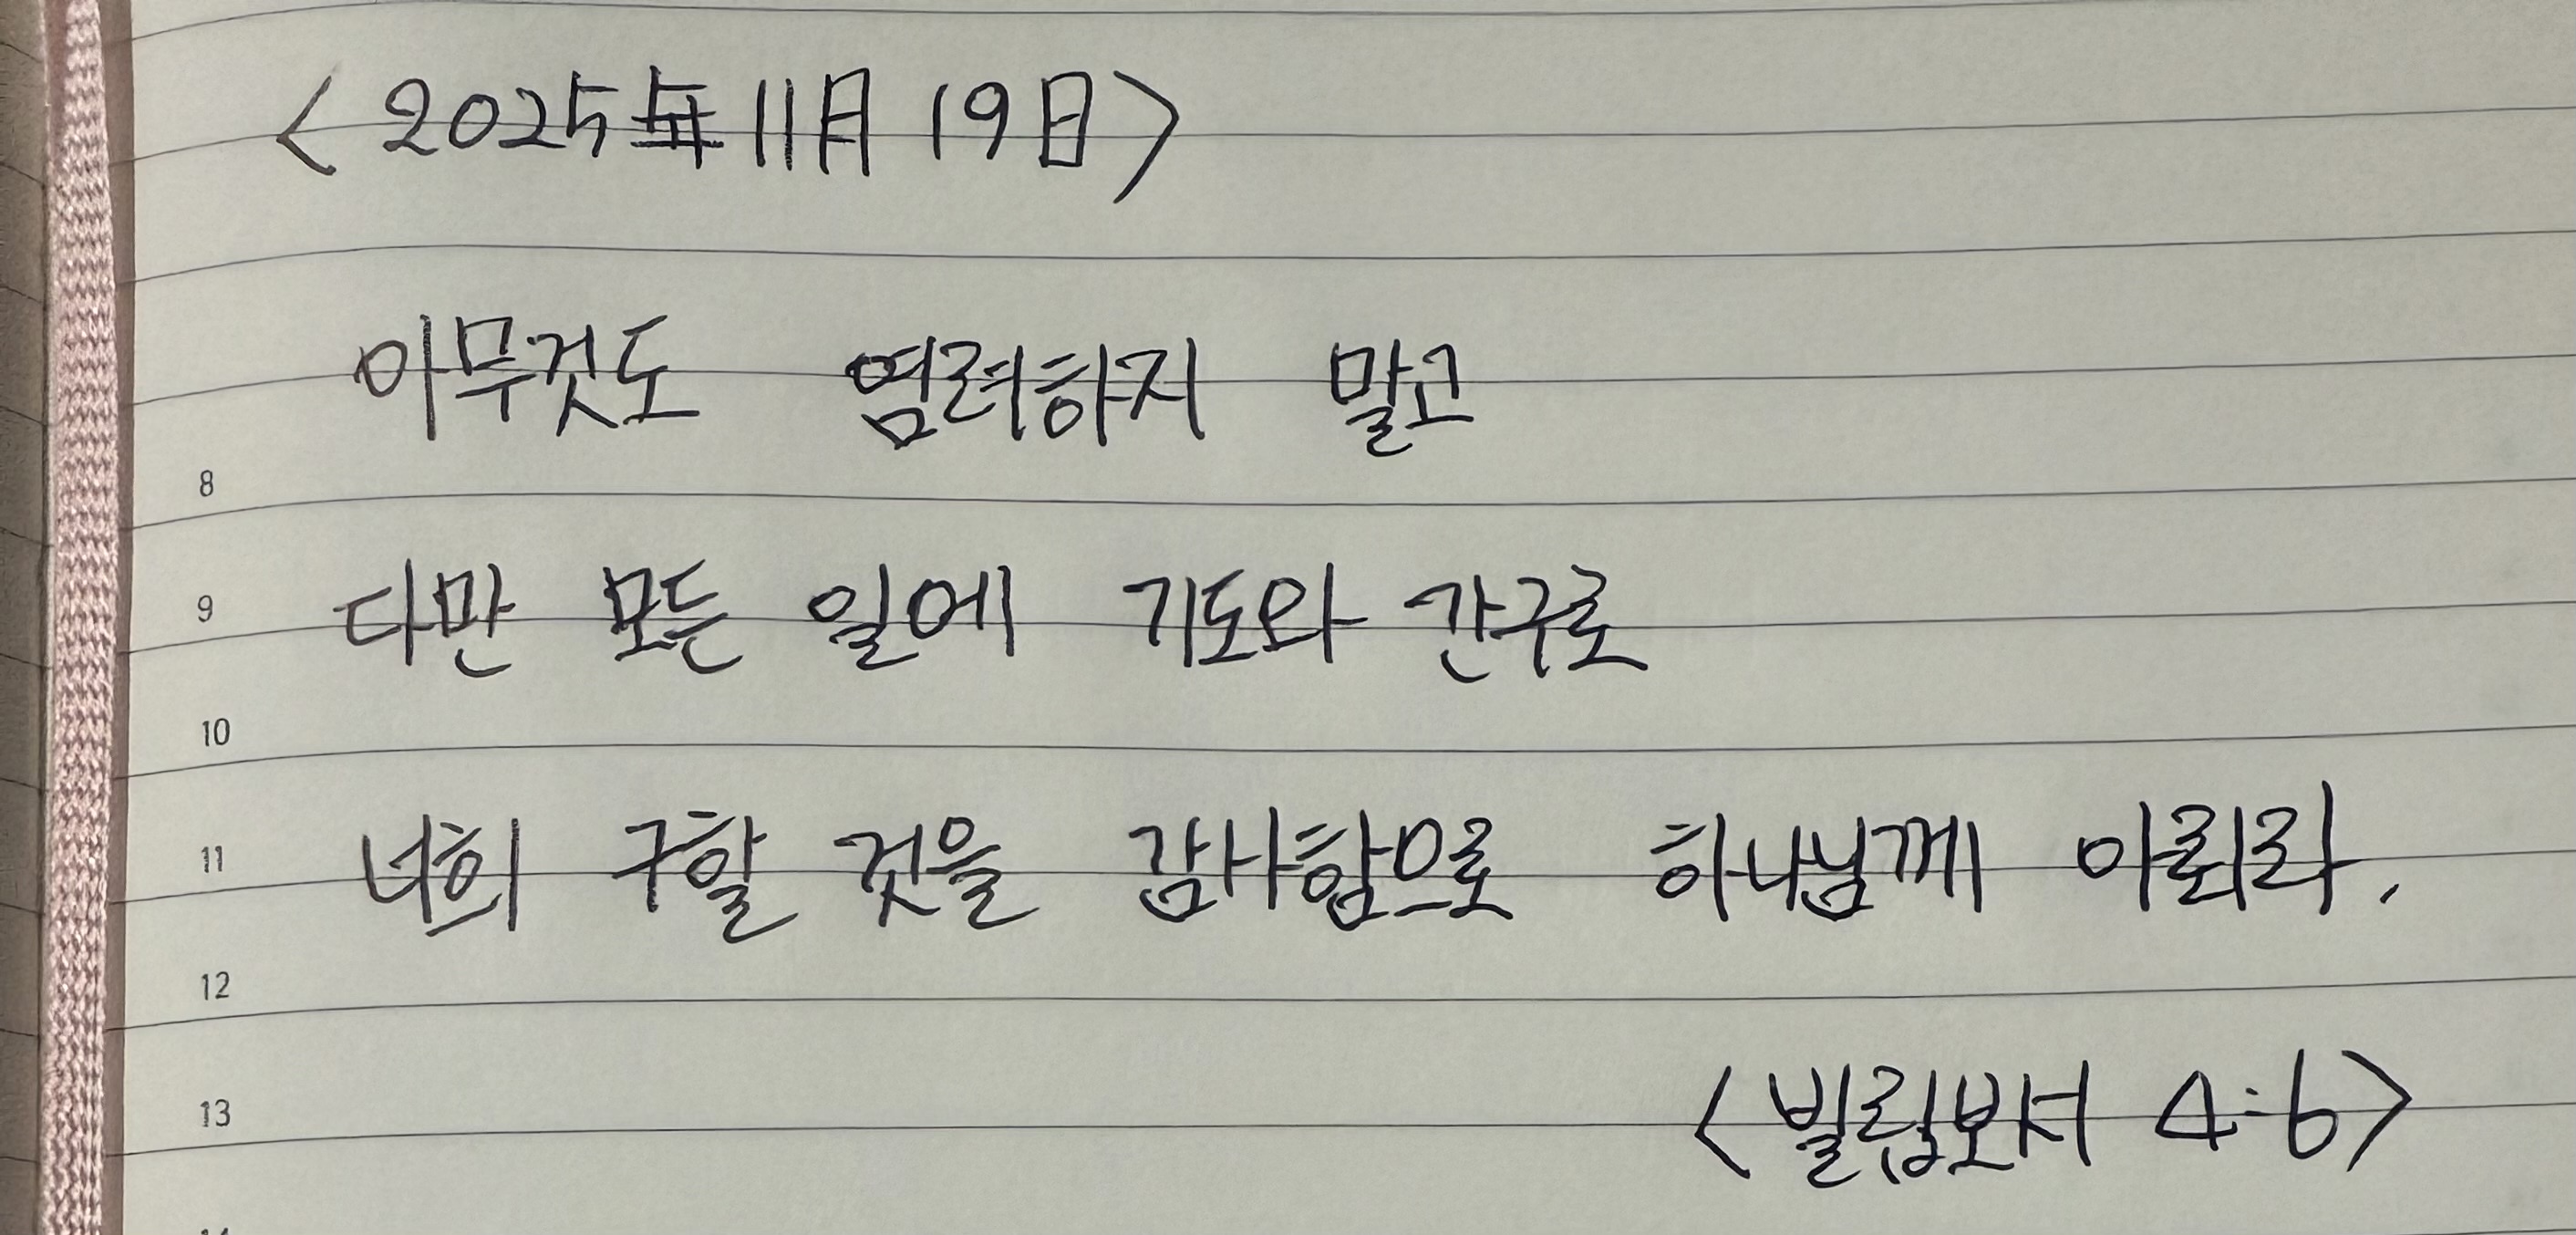 <2025年 11月 19日>
아무것도 염려하지 말고
8
9 다만 모든 일에 기도와 간구로
10
11 너희 구할 것을 감사함으로 하나님께 아뢰라.
12
13 <빌립보서 4:6>